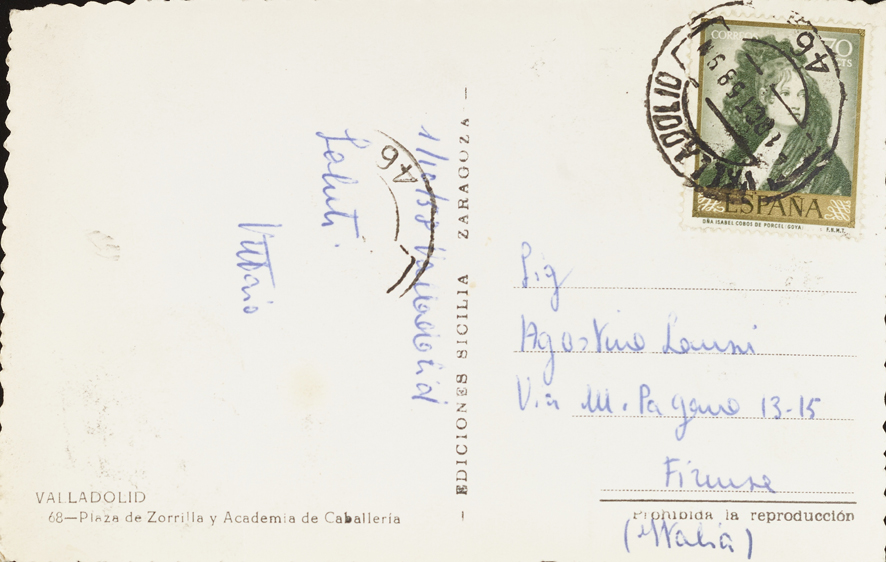 1/10/58 Valladolid
Saluti.
Vittorio
46
EDICIONES SICILIA ZARAGOZA
VALLADOLID
68—Plaza de Zorrilla y Academia de Caballería
CORREOS
70
CTS
ESPAÑA
DÑA ISABEL COBOS DE PORCEL (GOYA) F.N.M.T.
VALLADOLID
1 OCT 58
46
Sig
Agostino
Via M. Pagano 13-15
Firenze
(Italia)
Prohibida la reproducción